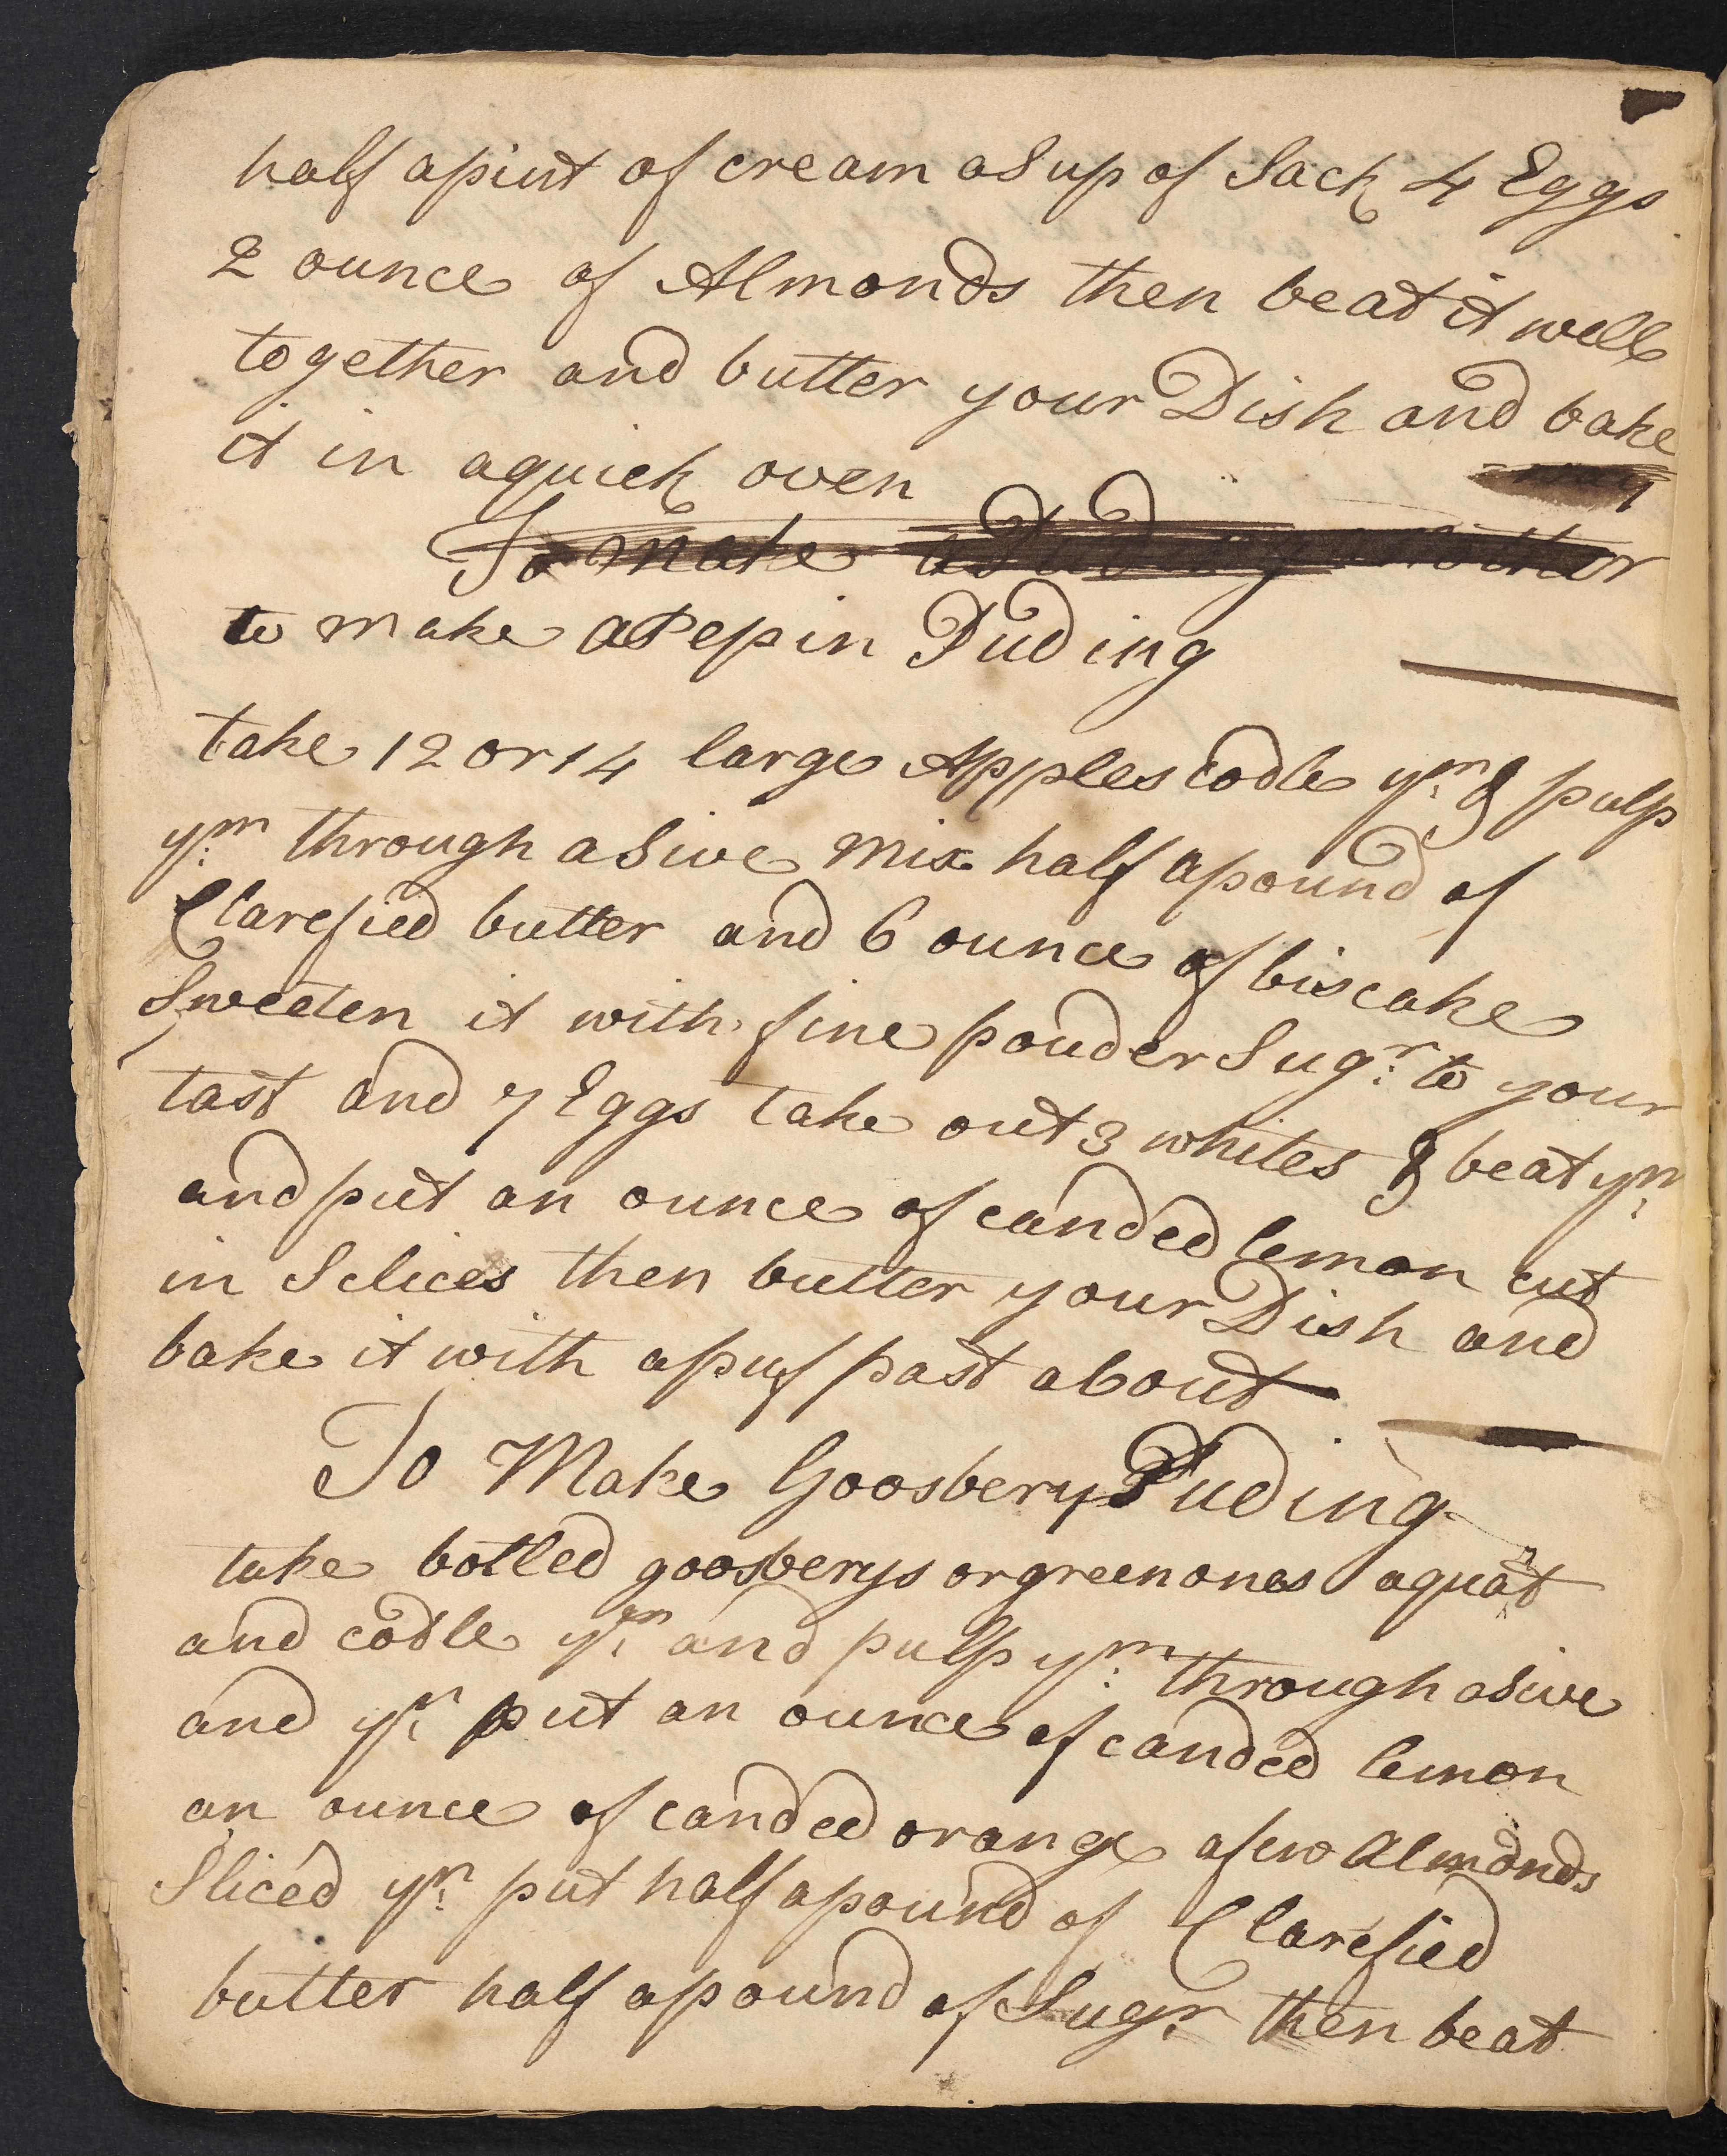 half a pint of cream a Sup of Sack 4 Eggs
2 ounce of Almonds then beat it well
together and butter your Dish and bake
it in a quick oven
way
To make a Puding another
to make a Pepin Puding
take 12 or 14 large Apples codle ym: & pulp
ym: through a Sive mix half a pound of
Clarefied butter and 6 ounce of biscake
Sweeten it with fine pouder Sugr: to your
tast and 7 Eggs take out 3 whites & beat ym:
and put an ounce of canded lemon cut
in Sclices then butter your Dish and
bake it with a puf past about
To Make Goosbery Puding
take botled goosberys or green ones a quat
and codle ym: and pulp ym: through a Sive
and yn: put an ounce of canded lemon
an ounce of canded orange a few Almonds
Sliced yn: put half a pound of Clarefied
butter half a pound of Sugr: then beat